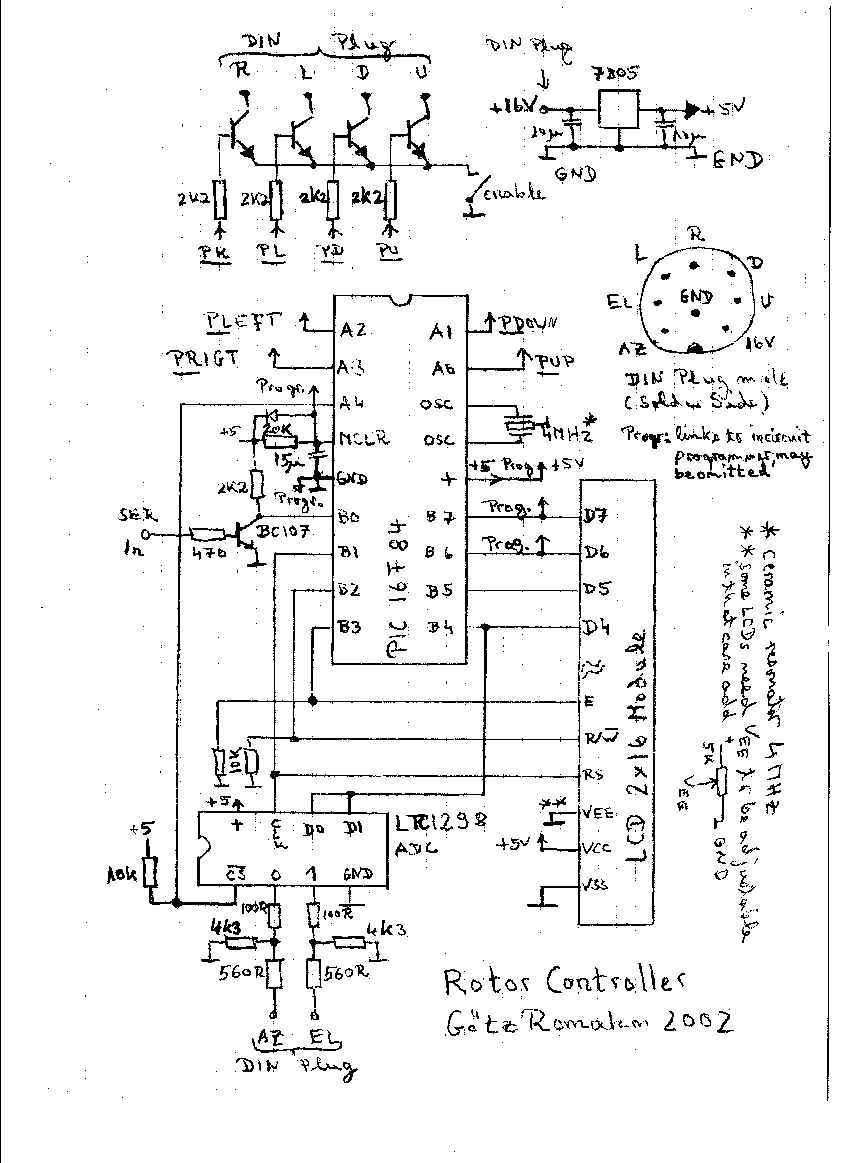 DIN Plug
R L D U
DIN Plug
7805
+16V
+5V
10µ
10µ
GND
GND
2K2 2K2 2K2 2K2
enable
PR PL PD PU
R
L D
EL GND U
AZ 16V
DIN Plug male
(Solder Side)
Progr: links to incircuit
programmer, may
be omitted
PLEFT
PRIGT
PDOWN
PUP
A2 A1
A3 A0
A4 OSC
MCLR OSC
GND +
B0 B7
B1 B6
B2 B5
B3 B4
PIC 16F84
Progr.
+5
20K
15µ
Progr.
2K2
SER
In
470
BC107
4MHZ*
+5 Prog +5V
Prog.
Prog.
D7
D6
D5
D4
E
R/W
RS
VEE
VCC
VSS
LCD 2x16 Module
**
+5V
* Ceramic resonator 4MHZ
** some LCDs need VEE to be adjustable
in that case add
+
5K
VEE
GND
10K
+5
+ CLK D0 D1
CS 0 1 GND
LTC1298
ADC
+5
10K
100R 100R
4K3 4K3
560R 560R
AZ EL
DIN Plug
Rotor Controller
Götz Romahn 2002